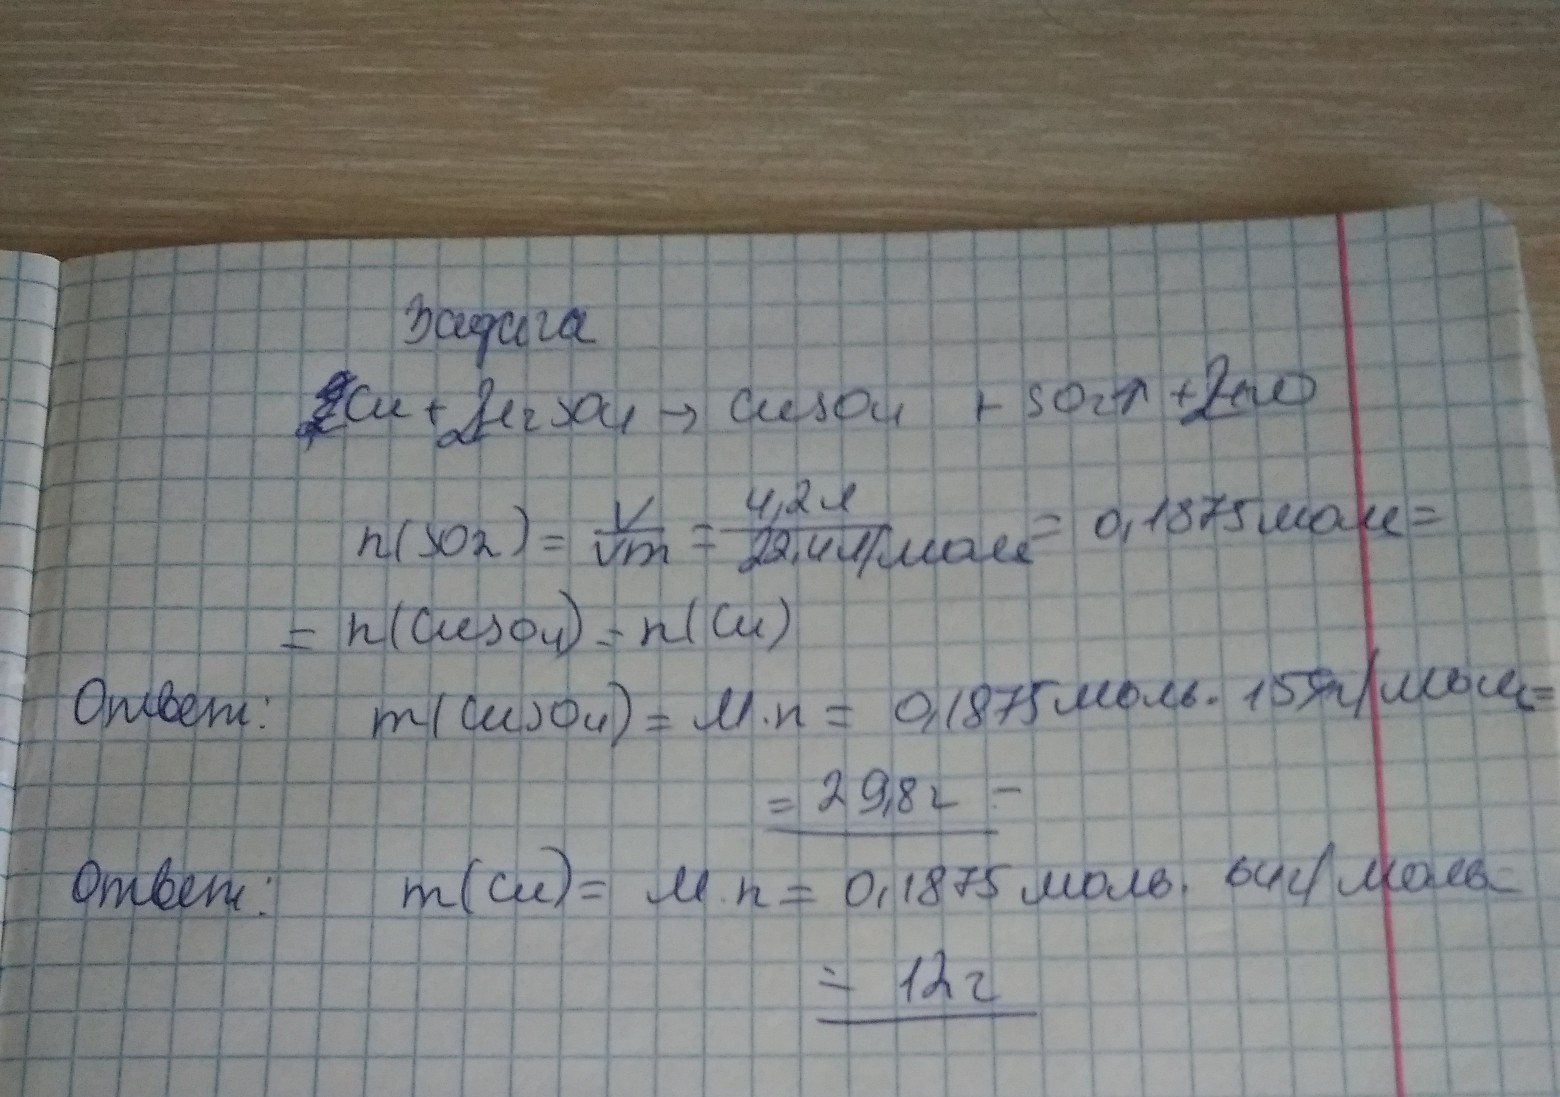 Задача
Cu + 2H2SO4 → CuSO4 + SO2↑ + 2H2O
n(SO2) = V/Vm = 4,2л/22,4л/моль = 0,1875моль =
= n(CuSO4) = n(Cu)
Ответ: m(CuSO4) = M·n = 0,1875моль · 159г/моль =
= 29,8г
Ответ: m(Cu) = M·n = 0,1875моль · 64г/моль =
= 12г